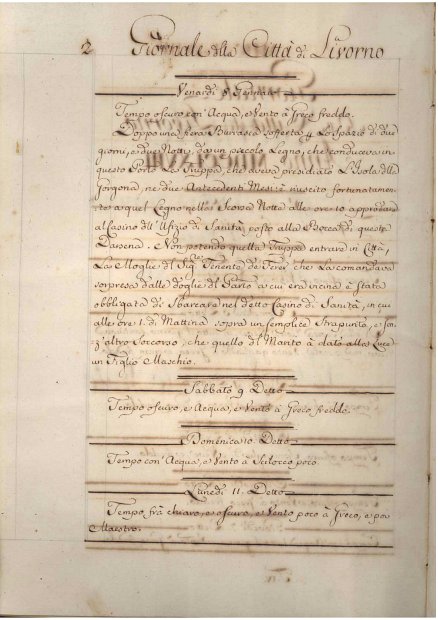 2 Giornale della Città di Livorno
Venardi 8 Gennaio
Tempo oscuro con' Acqua, e Vento à Greco freddo.
Doppo una fiera Burasca sofferta p Lo Spazio di due
giorni, e due Notti da un piccolo Legno, che conduceva in
questo Porto La Truppa che aveva presidiato L'Isola della
Gorgona ne due Antecedenti Mesi: è riuscito fortunatamen-
to a quel Legno nella Scorsa Notte alle ore 10 approdare
al Casino dell' Ufizio di Sanità posto alla Bocca di questa
Darsena. Non potendo quella Truppa entrare in Città,
La Moglie del Sig.e Tenente de Ferer che La comandava
sorpresa dalle doglie di Parto a cui era vicina è stata
obbligata di Sbarcare nel detto Casino di Sanità, in cui
alle ore 1. di Mattina sopra un semplice Strapunto, e sen-
z'altro Soccorso che quello del Marito à dato alla Luce
un Figlio Maschio.
Sabbato 9 Detto
Tempo oscuro, e Acqua, e Vento à Greco freddo.
Domenica 10. Detto
Tempo con' Acqua, e Vento à Scilocco poco.
Lunedi 11. Detto
Tempo frà chiaro, e oscuro, e Vento poco à Greco, e poi
Maestro.